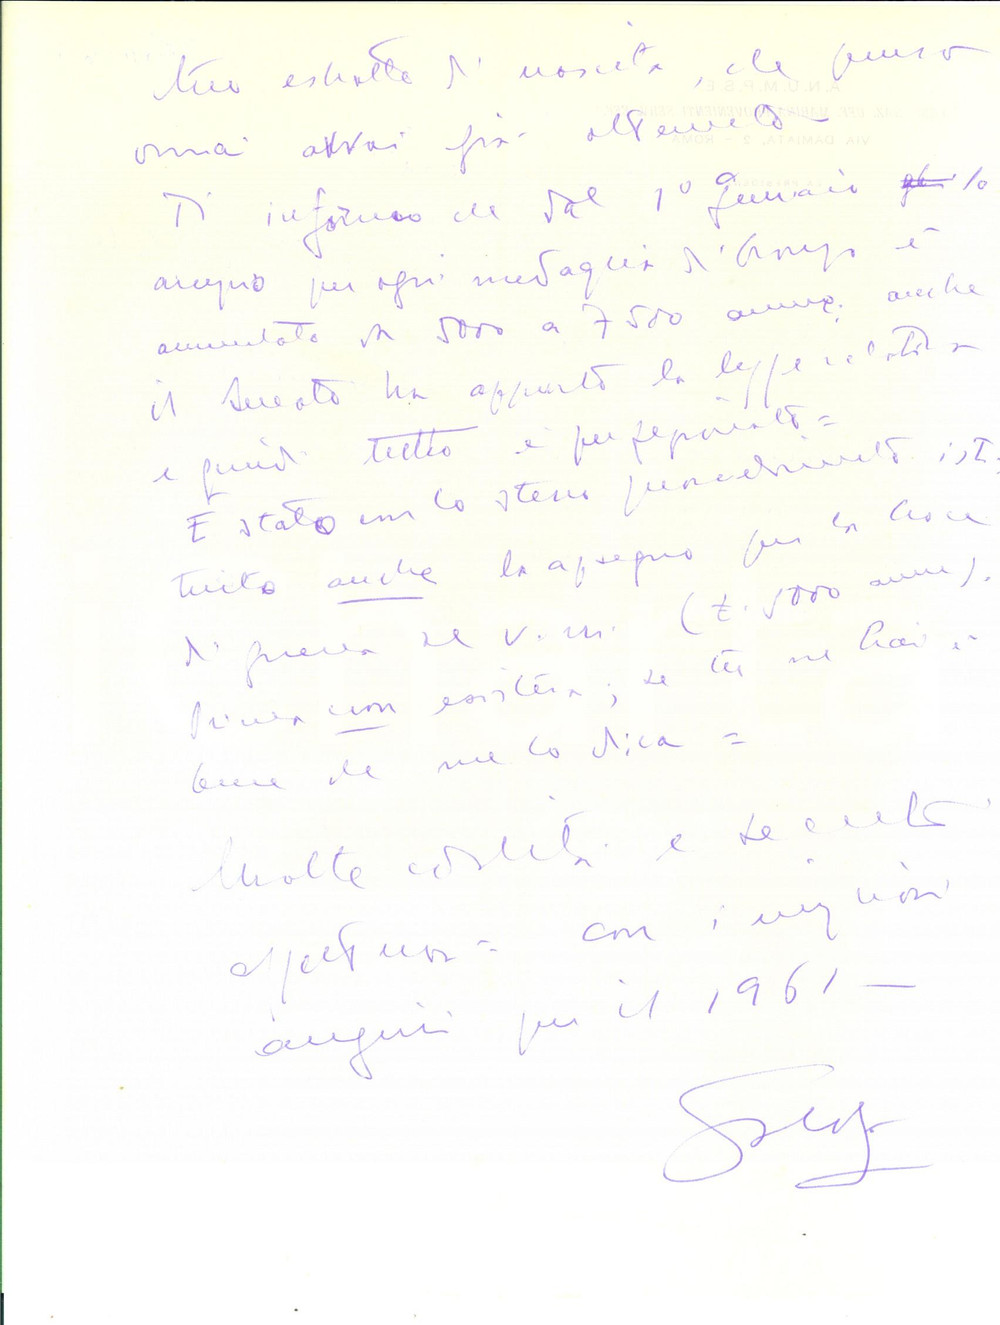 Tuo estratto di nascita, che penso
ormai avrai già ottenuto -
Ti informo che dal 1° gennaio lo
assegno per ogni medaglia di bronzo è
aumentato da 5000 a 7500 annue. anche
il Senato ha approvato la legge relativa
e quindi tutto è perfezionato =
E stato con lo stesso procedimento isti
tuito anche lo assegno per la Croce
di guerra al v. m. (£. 5000 annue).
Prima non esisteva; se tu ne hai è
bene che me lo dica =
Molte cordialità e
con i migliori
auguri per il 1961 -